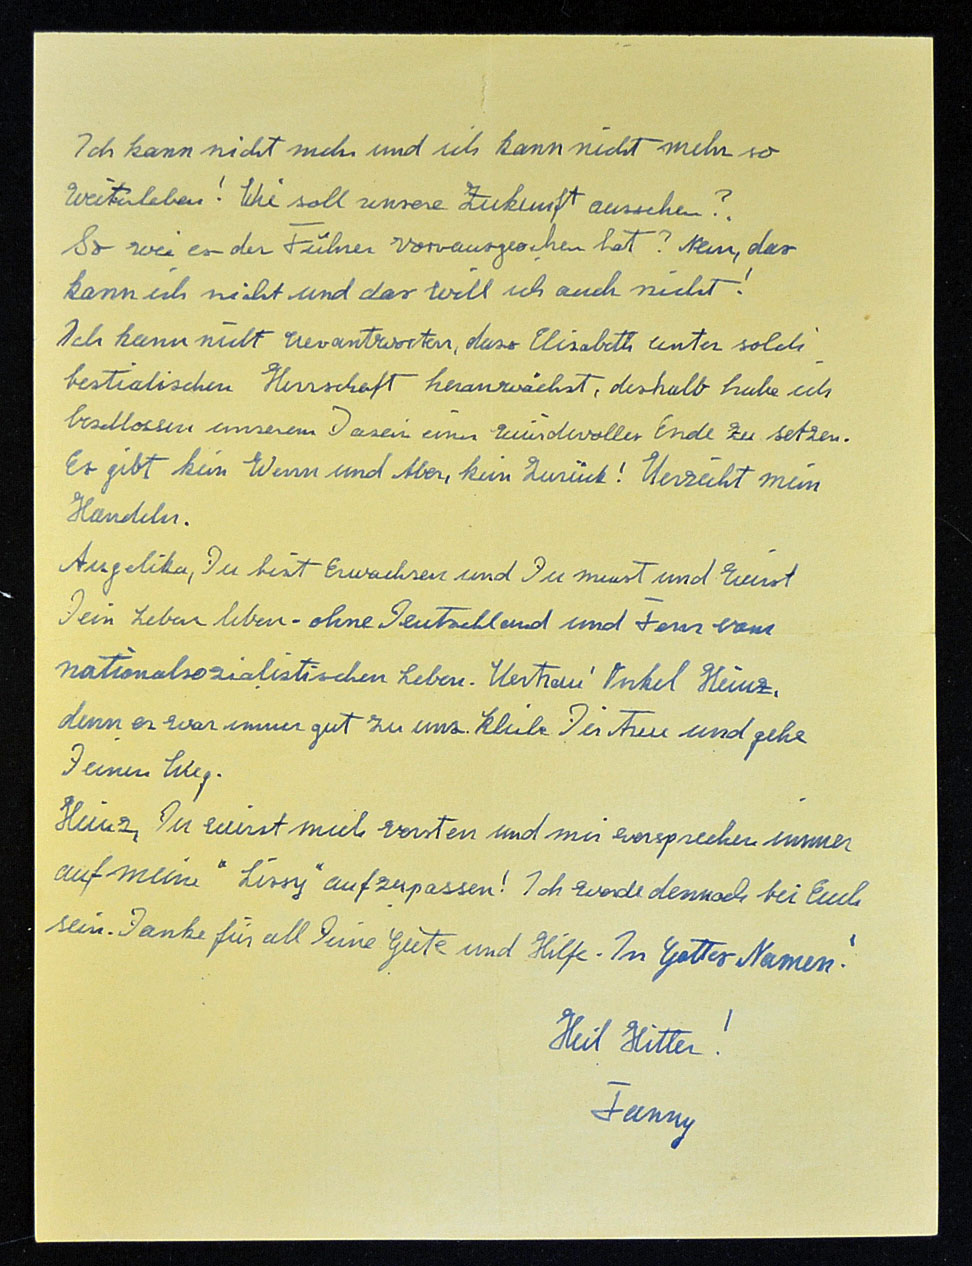 Ich kann nicht mehr und ich kann nicht mehr so
weiterleben! Wie soll unsere Zukunft aussehen?
So wie es der Führer vorausgesehen hat? Nein, das
kann ich nicht und das will ich auch nicht!
Ich kann nicht verantworten, dass Elisabeth unter solch
bestialischen Herrschaft heranwächst, deshalb habe ich
beschlossen unserem Dasein einen würdevolles Ende zu setzen.
Es gibt kein Wenn und Aber, kein Zurück! Verzeiht mein
Handeln.
Angelika, Du bist Erwachsen und Du musst und wirst
Dein Leben leben - ohne Deutschland und Fern vom
nationalsozialistischen Leben. Vertrau' Onkel Heinz,
denn er war immer gut zu uns. Bleibe Dir treu und gehe
Deinen Weg.
Heinz, Du wirst mich versten und mir versprechen immer
auf meine "Lissy" aufzupassen! Ich werde dennoch bei Euch
sein. Danke für all Deine Güte und Hilfe. In Gottes Namen!
Heil Hitler!
Fanny